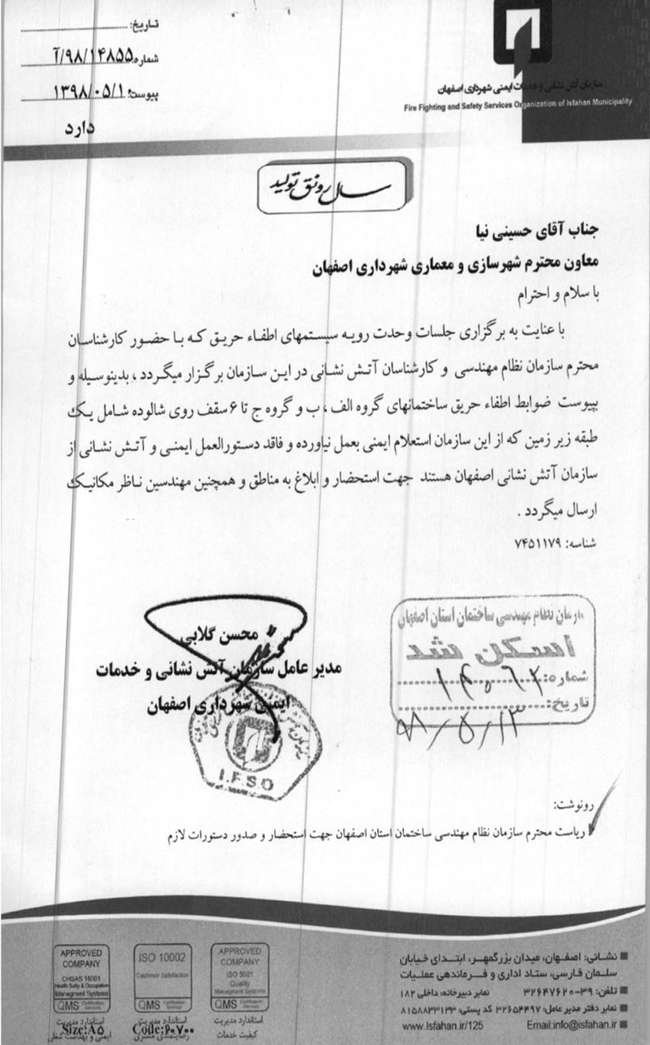 تاریخ:
شماره: ۹۸/۱۴۸۵۵/آ
پیوست: ۱۳۹۸/۰۵/۱۰
دارد
سازمان آتش نشانی و خدمات ایمنی شهرداری اصفهان
Fire Fighting and Safety Services Organization of Isfahan Municipality
سال رونق تولید
جناب آقای حسینی نیا
معاون محترم شهرسازی و معماری شهرداری اصفهان
با سلام و احترام
با عنایت به برگزاری جلسات وحدت رویه سیستمهای اطفاء حریق که با حضور کارشناسان
محترم سازمان نظام مهندسی و کارشناسان آتش نشانی در این سازمان برگزار میگردد ، بدینوسیله و
بپیوست ضوابط اطفاء حریق ساختمانهای گروه الف ، ب و گروه ج تا ۶ سقف روی شالوده شامل یک
طبقه زیر زمین که از این سازمان استعلام ایمنی بعمل نیاورده و فاقد دستورالعمل ایمنی و آتش نشانی از
سازمان آتش نشانی اصفهان هستند جهت استحضار و ابلاغ به مناطق و همچنین مهندسین ناظر مکانیک
ارسال میگردد .
شناسه: ۷۴۵۱۱۷۹
محسن گلابی
مدیر عامل سازمان آتش نشانی و خدمات
ایمنی شهرداری اصفهان
I.F.S.O
سازمان نظام مهندسی ساختمان استان اصفهان
اسکن شد
شماره: ۱۴۰۶۲
تاریخ: ۹۸/۵/۱۳
رونوشت:
ریاست محترم سازمان نظام مهندسی ساختمان استان اصفهان جهت استحضار و صدور دستورات لازم
APPROVED COMPANY
OHSAS 18001
Health Safty & Occupation
Managment Systems
QMS Certification Services
استاندارد مدیریت
ایمنی و بهداشت شغلی
Size:A5
ISO 10002
Customer Satisfaction
QMS Certification Services
استاندارد مدیریت
رضایتمندی مشتری
Code:۶۰۷۰۰
APPROVED COMPANY
ISO 9001
Quality
Managment Systems
QMS Certification Services
استاندارد مدیریت
کیفیت خدمات
نشانی: اصفهان، میدان بزرگمهر، ابتدای خیابان
سلمان فارسی، ستاد اداری و فرماندهی عملیات
تلفن: ۳۹-۳۲۶۴۷۶۲۰ نمابر دبیرخانه: داخلی ۱۸۲
نمابر دفتر مدیر عامل: ۳۲۶۵۴۴۹۷ کد پستی: ۸۱۵۸۸۳۳۱۳۳
www.Isfahan.ir/125 Email:info@isfahan.ir